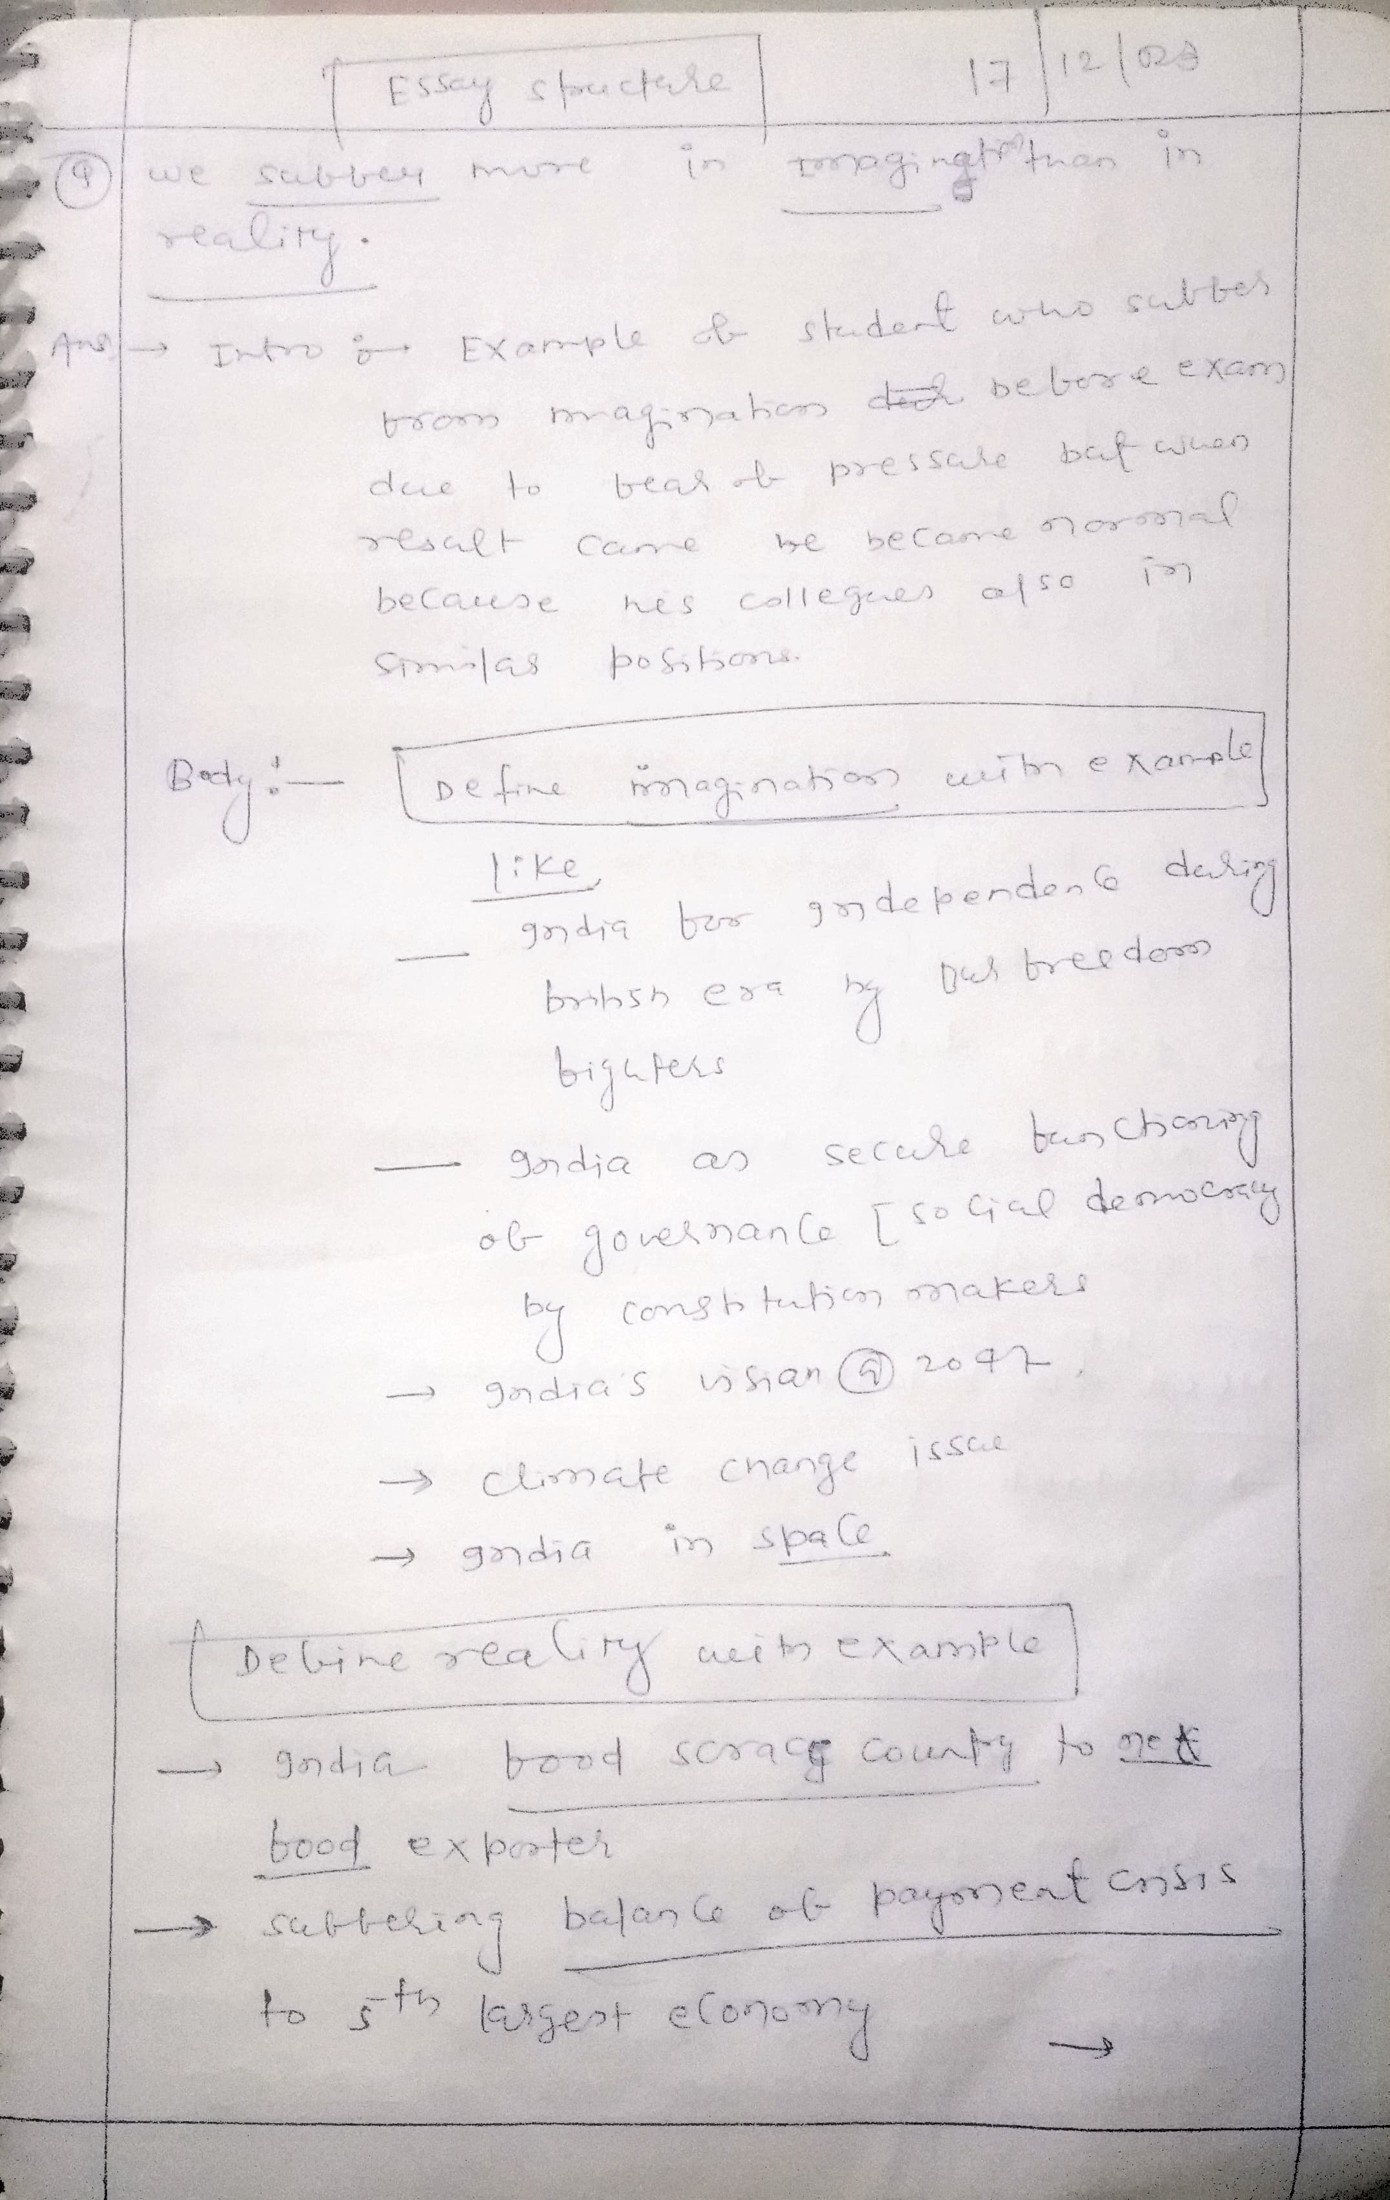 Essay structure
17/12/023
Q we suffer more in Imagination than in
reality.
Ans → Intro :- Example of student who suffer
from imagination before exam
due to fear of pressure but when
result came he became normal
because his collegues also in
similar positions.
Body :- Define imagination with example
like,
— India for Independence during
british era by our freedom
fighters
— India as secure functioning
of governance [social democracy
by constitution makers
→ India's vision @ 2047.
→ climate change issue
→ India in space
Define reality with example
→ India food scracy country to net
food exporter
→ suffering balance of payment crisis
to 5th largest economy
→